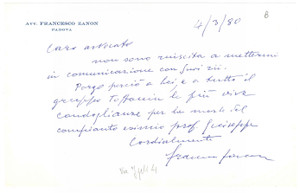 AVV. FRANCESCO ZANON
PADOVA
4/3/80
8
Caro avvocato
non sono riuscita a mettermi
in comunicazione con suoi zii.
Porgo perciò a Lei e a tutto il
gruppo le più vive
condoglianze per la morte del
compianto prof. Giuseppe
Cordialmente